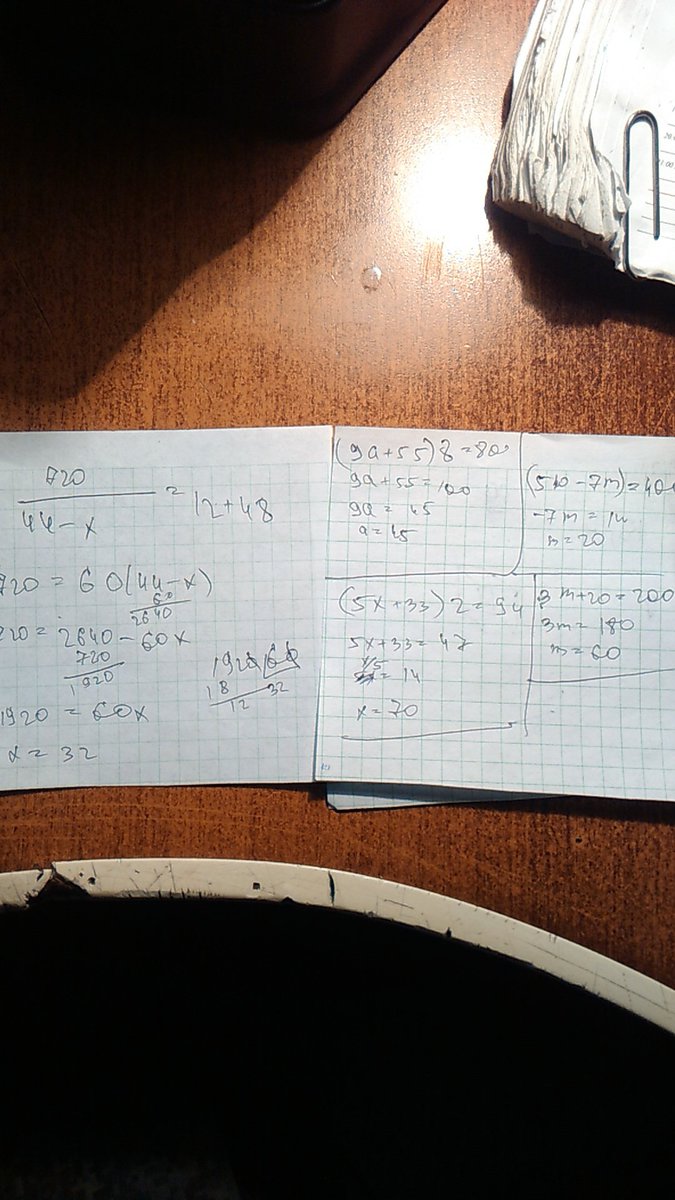 720
44-x
= 12+48
720 = 60(44-x)
60
2640
720 = 2640-60x
720
1920
1920 = 60x
x = 32
1920 60
18
32
12
(9a+55)8=800
9a+55=100
9a = 45
a=45
-7m = 14
m=20
(5x+33)2=94
5x+33=47
= 14
x=70
3m+20=200
3m=180
m=60